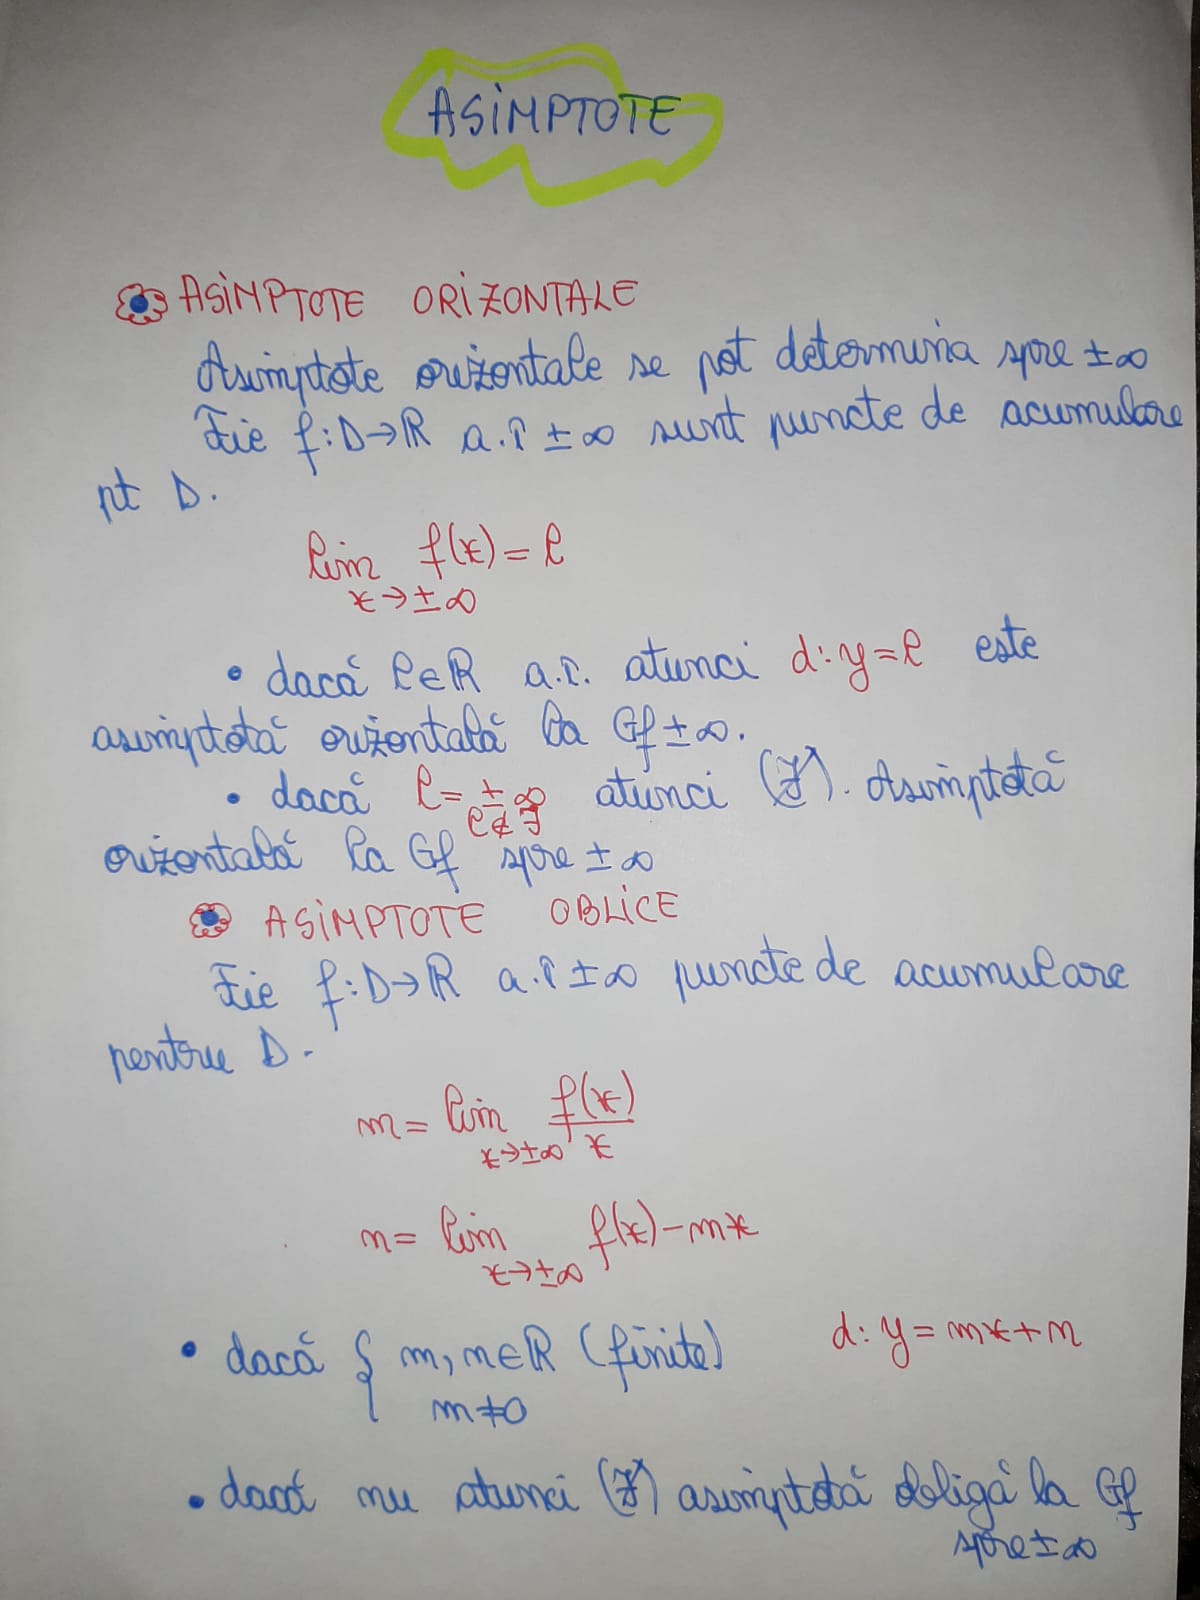 ASIMPTOTE
ASIMPTOTE ORIZONTALE
Asimptote orizontale se pot determina spre ±∞
Fie f:D→R a.î ±∞ sunt puncte de acumulare
pt D.
lim f(x)=l
x→±∞
• dacă l∈R a.î. atunci d:y=l este
asimptotă orizontală la Gf ±∞.
• dacă l=±∞ atunci (∄). Asimptotă
l∉J
orizontală la Gf spre ±∞
ASIMPTOTE OBLICE
Fie f:D→R a.î ±∞ puncte de acumulare
pentru D.
m= lim f(x)/x
x→±∞
n= lim f(x)-mx
x→±∞
• dacă { m,n∈R (finite) d:y=mx+n
m≠0
• dacă nu atunci (∄) asimptotă obligă la Gf
spre ±∞